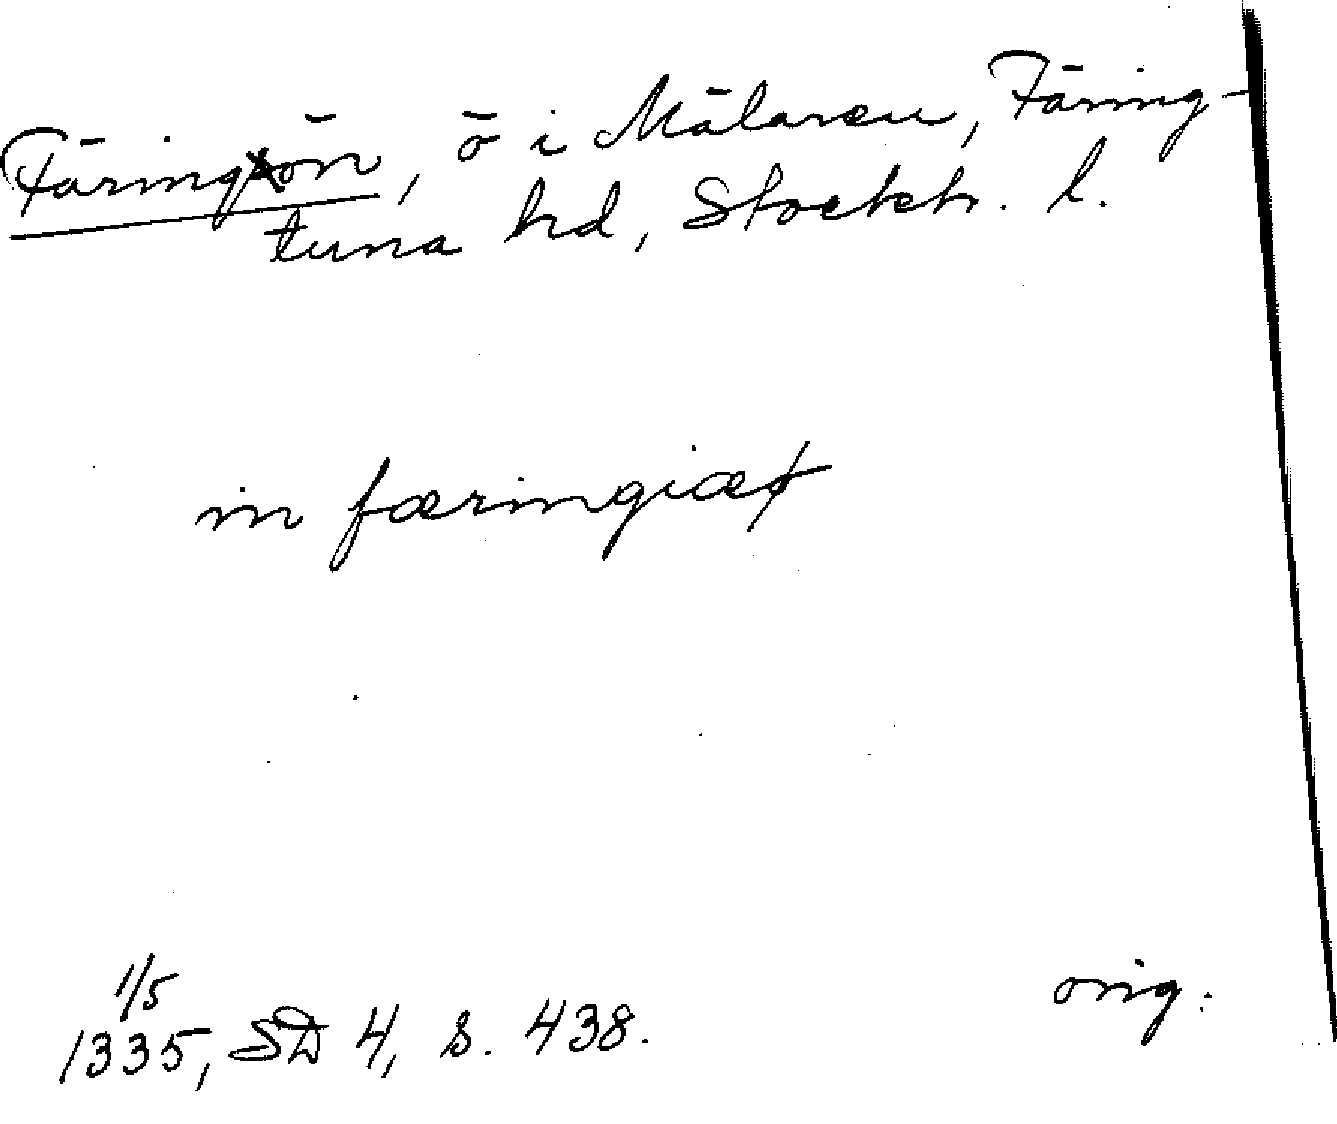 Färingön, ö i Mälaren, Färing-
tuna hd, Stockh. l.
in færingiæø
1/5
1335, SD 4, s. 438.
orig.